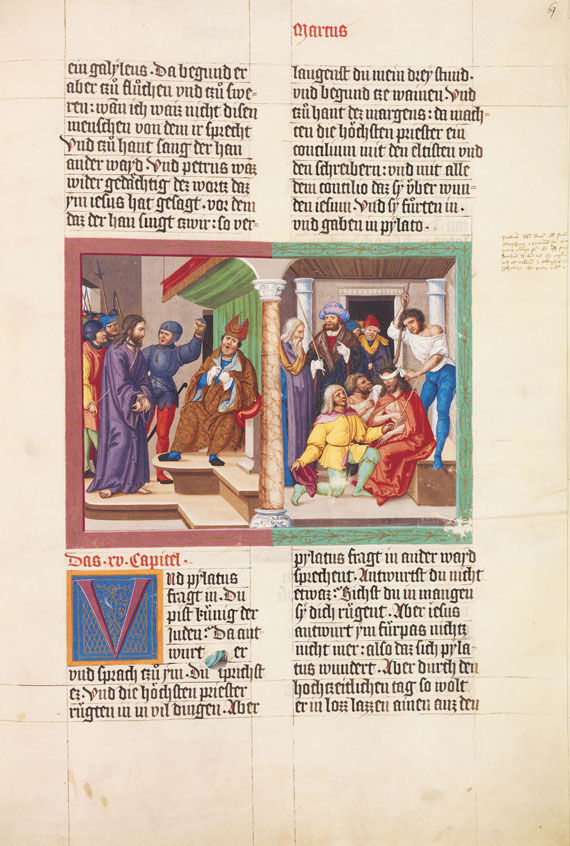 Marcus
67
ein galyleus. Da begund er
aber tzů flůchen vnd tzů swe-
ren: wān ich waiz nicht disen
menschen von dem ir sprecht
Vnd tzů hant sang der han
ander wayd. Vnd petrus waz
wider gedächtig dez wortz daz
ym iesus hat gesagt. vor dem
daz der han singt zwir: so ver-
laugenst du mein drey stund.
vnd begund tze wainen. Vnd
tzů hant dez margens: da mach-
ten die höchsten priester ein
concilium mit den eltisten vnd
den schreibern: vnd mit alle
dem concilio daz sy über wun-
den iesum. Vnd sy fůrten in.
vnd gaben in pylato.
Das .xv. Capitel.
Vnd pylatus
fragt in. Du
pist künig der
Juden: Da ant
wurt er
vnd sprach tzů ym. Du sprichst
ez. Vnd die höchsten priester
růgten in in vil dingen. Aber
pylatus fragt in ander wayd
sprechent. Antwurtst du nicht
etwaz: Sichst du in mangen
sy dich růgent. Aber iesus
antwurt ym fürpas nichtz
nicht mer: also daz sich pyla-
tus wundert. Aber durch den
hochzeitlichen tag so wolt
er in lozz lazzen ainen auz den